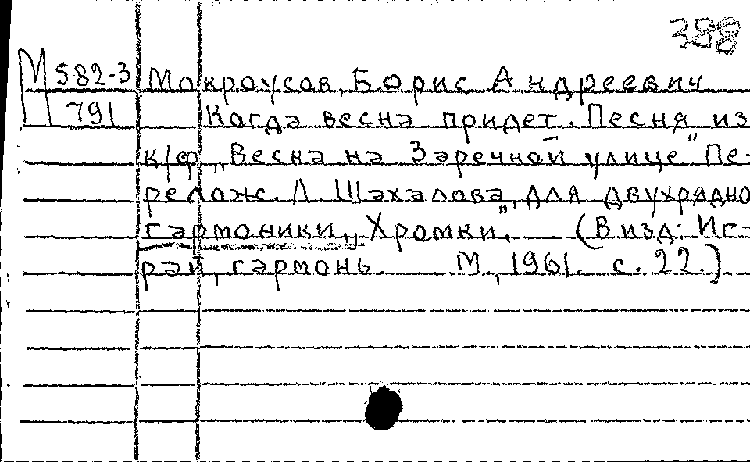 388
М 582-3 Мокроусов, Борис Андреевич
791 Когда весна придет. Песня из
к/ф „Весна на Заречной улице" Пе-
релож. Л. Шахалова для двухрядно
гармоники „Хромки". (В изд: Иг-
рай, гармонь. М., 1961. с. 22.)